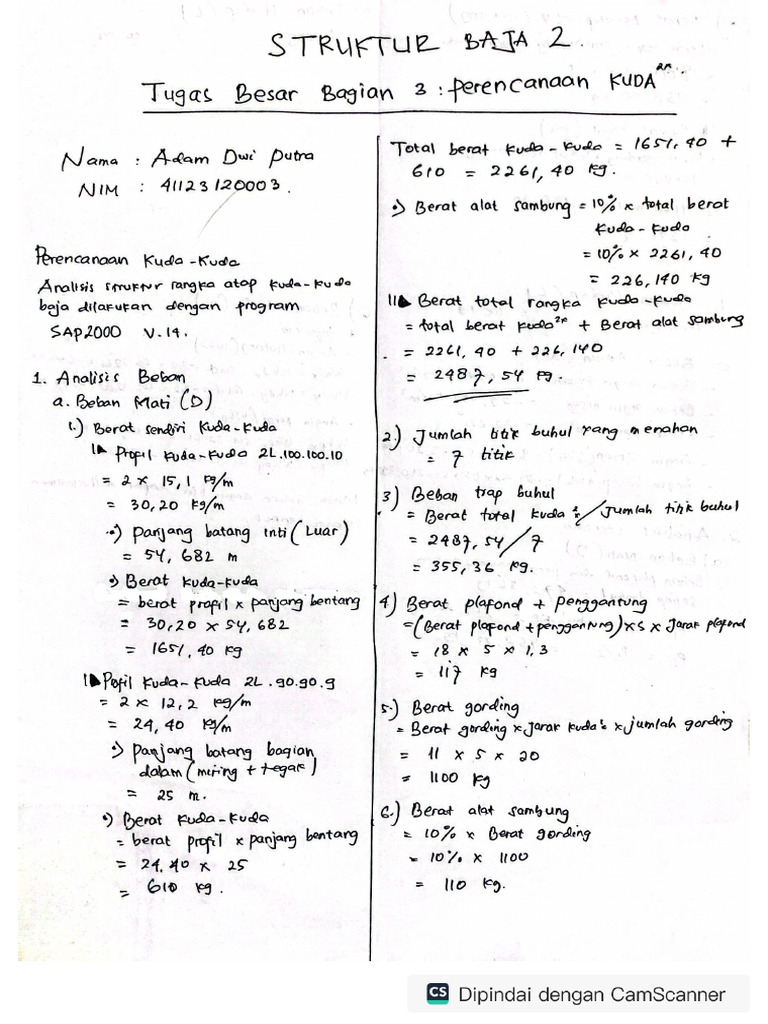 STRUKTUR BAJA 2.
Tugas Besar Bagian 3 : Perencanaan KUDA²ⁿ.
Nama : Adam Dwi Putra
NIM : 41123120003.
Perencanaan Kuda-Kuda
Analisis struktur rangka atap Kuda-Kuda
baja dilakukan dengan program
SAP2000 V.14.
1. Analisis Beban
a. Beban Mati (D)
1.) Berat sendiri Kuda-Kuda
Profil Kuda-Kuda 2L.100.100.10
= 2 x 15,1 kg/m
= 30,20 kg/m
•) Panjang batang inti (Luar)
= 54,682 m
•) Berat Kuda-Kuda
= berat profil x panjang bentang
= 30,20 x 54,682
= 1651,40 kg
Pofil Kuda-Kuda 2L.90.90.9
= 2 x 12,2 kg/m
= 24,40 kg/m
•) Panjang batang bagian
dalam (miring + tegak)
= 25 m.
•) Berat Kuda-Kuda
= berat profil x panjang bentang
= 24,40 x 25
= 610 kg.
Total berat Kuda-Kuda = 1651,40 +
610 = 2261,40 kg.
•) Berat alat sambung = 10% x total berat
Kuda-Kuda
= 10% x 2261,40
= 226,140 kg
Berat total rangka Kuda-Kuda
= total berat Kuda²ⁿ + Berat alat sambung
= 2261,40 + 226,140
= 2487,54 kg.
2.) Jumlah titik buhul yang menahan
= 7 titik
3) Beban trap buhul
= Berat total kuda² / Jumlah titik buhul
= 2487,54 / 7
= 355,36 kg.
4) Berat plafond + penggantung
= (Berat plafond + penggantung) x 5 x Jarak plafond
= 18 x 5 x 1,3
= 117 kg
5.) Berat gording
= Berat gording x Jarak kuda² x jumlah gording
= 11 x 5 x 20
= 1100 kg
6.) Berat alat sambung
= 10% x Berat gording
= 10% x 1100
= 110 kg.
CS Dipindai dengan CamScanner